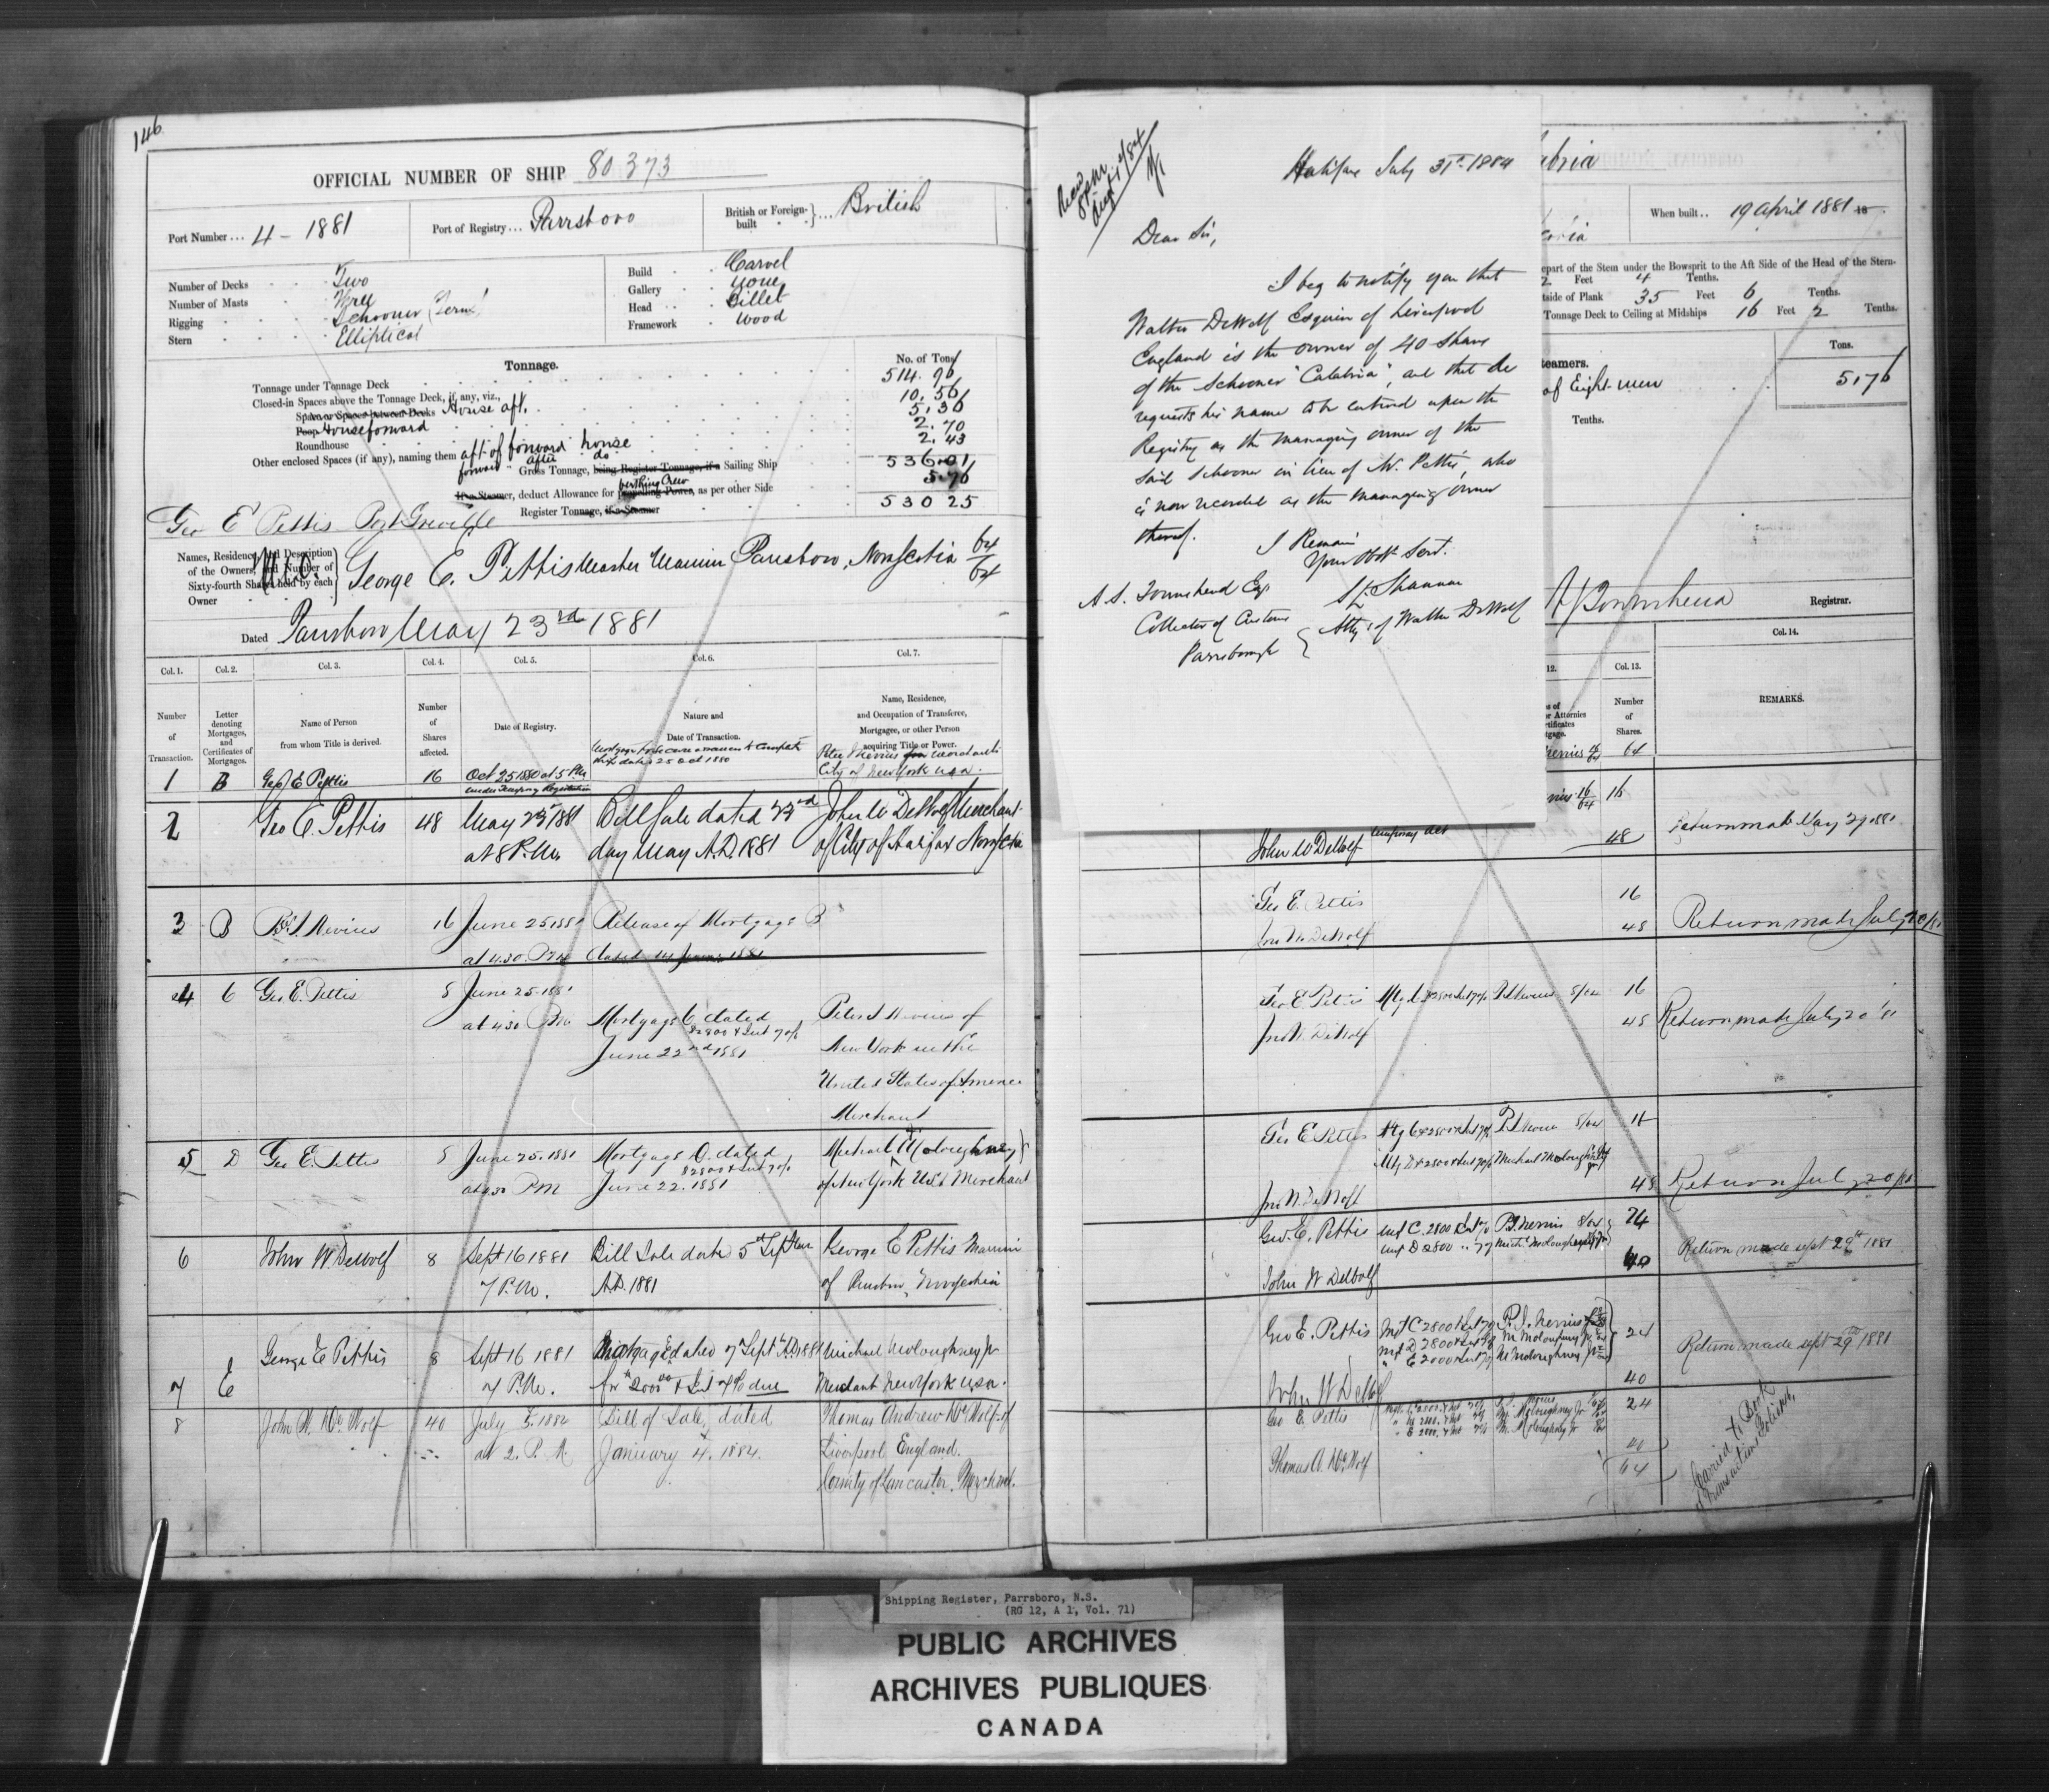 146
OFFICIAL NUMBER OF SHIP 80373
Port Number ... 4 - 1881
Port of Registry ... Parrsboro
British or Foreign-built } ... British
Number of Decks Two
Number of Masts Three
Rigging Schooner (Tern)
Stern Elliptical
Build Carvel
Gallery None
Head Billet
Framework Wood
Tonnage. No. of Tons
Tonnage under Tonnage Deck 514.96
Closed-in Spaces above the Tonnage Deck, if any, viz.,
Space or Spaces between Decks House aft. 10.56
Poop House forward 5.36
Roundhouse 2.70
Other enclosed Spaces (if any), naming them aft of forward house 2.43
forward " after do
Gross Tonnage, being Register Tonnage, if a Sailing Ship 536.01
If a Steamer, deduct Allowance for propelling Power, berthing Crew as per other Side 5.76
Register Tonnage, if a Steamer 530 25
Geo E Pettis Port Greville
M.O.
Names, Residence, and Description of the Owners, and Number of Sixty-fourth Shares held by each Owner } George E. Pettis Master Mariner Parrsboro, Nova Scotia 64/64
Dated Parrsboro May 23rd 1881
Col. 1. Col. 2. Col. 3. Col. 4. Col. 5. Col. 6. Col. 7.
Number of Transaction.
Letter denoting Mortgages, and Certificates of Mortgages.
Name of Person from whom Title is derived.
Number of Shares affected.
Date of Registry.
Nature and Date of Transaction.
Name, Residence, and Occupation of Transferee, Mortgagee, or other Person acquiring Title or Power.
1 B Geo E Pettis 16 Oct 25 1880 at 5 P.M.
under Temporary Registration
Ship dated 25 Oct 1880
City of New York USA.
2 Geo E. Pettis 48 May 23 1881 Bill Sale dated 23rd John W DeWolf Merchant
at 8 P.M. day May A.D. 1881 of City of Halifax Nova Scotia
3 B P. I. Nevius 16 June 25 1881 Release of Mortgage B
at 4.30 P.M. dated 14 June 1881
4 C Geo. E. Pettis 8 June 25. 1881
at 4.30 P.M. Mortgage C dated Peter I Nevius of
$2800 & Int 7 o/o
June 22nd 1881 New York in the
United States of America
Merchant
5 D Geo E. Pettis 8 June 25. 1881 Mortgage D. dated Michael Moloughney
$2800 & Int 7 o/o
at 4.30 PM June 22. 1881 of New York USA Merchant
6 John W DeWolf 8 Sept 16 1881 Bill Sale date 5th September George E Pettis Mariner
7 P.M. A.D. 1881 of Parrsboro, Nova Scotia
7 E George E Pettis 8 Sept 16 1881 Mortgage E dated 7 Sept A.D. 1881 Michael Moloughney Jr
7 P.M. for $2000 & Int 7 % due Merchant New York USA.
8 John W. De Wolf 40 July 5. 1884 Bill of Sale, dated Thomas Andrew De Wolf of
at 2. P. M January 4. 1884. Liverpool England.
County of Lancaster. Merchant.
Recd
8 p.m.
Aug 1/84
Halifax July 31st 1884
Dear Sir,
I beg to notify you that
Walter DeWolf Esquire of Liverpool
England is the owner of 40 shares
of the Schooner "Calabria", and that he
requests his name to be entered upon the
Registry as the managing owner of the
said Schooner in lieu of Mr. Pettis, who
is now recorded as the managing owner
thereof.
I Remain
Your Obdt Servt.
S L Shannon
Atty of Walter DeWolf
A. S. Townshend Esq.
Collector of Customs
Parrsborough
abria
When built .. 19 April 1881 18
epart of the Stem under the Bowsprit to the Aft Side of the Head of the Stern-
2 Feet 4 Tenths.
tside of Plank 35 Feet 6 Tenths.
Tonnage Deck to Ceiling at Midships 16 Feet 2 Tenths.
teamers. Tons.
of Eight men 5.76
Tenths.
A S Townshend Registrar.
12. Col. 13. Col. 14.
Number of Shares.
REMARKS.
Nevius 64
16/64 16
John W DeWolf 48 Return made May 29 1881
Geo E. Pettis 16
Jno W. DeWolf 48 Return made July 20/81
Geo E. Pettis Mtg C $2800 Int 7 o/o P. I. Nevius 8/64 16
Jno W. DeWolf 48 Return made July 20 '81
Geo E Pettis Mtg C $2800 & Int 7 o/o P I Nevius 8/64 16
Mtg D $2800 & Int 7 o/o Michael Moloughney Jr
Jno W. DeWolf 48 Return July 20/81
Geo. E. Pettis Mtg C. 2800 & Int P. I. Nevius 8/64 24
Mtg D 2800 " 7 Michl Moloughney Jr
John W DeWolf 40 Return made Sept 29th 1881
Geo E. Pettis Mtg C 2800 & Int 7 P. I. Nevius
Mtg D 2800 & Int M Moloughney Jr 24 Return made Sept 29th 1881
" E 2000 & Int 7 M Moloughney Jr
John W DeWolf 40
Geo E. Pettis 24
" E 2000. & Int 7% M. Moloughney Jr
Thomas A. De Wolf 40
64
Carried to Book
of Transactions
Shipping Register, Parrsboro, N.S.
(RG 12, A 1, Vol. 71)
PUBLIC ARCHIVES
ARCHIVES PUBLIQUES
CANADA